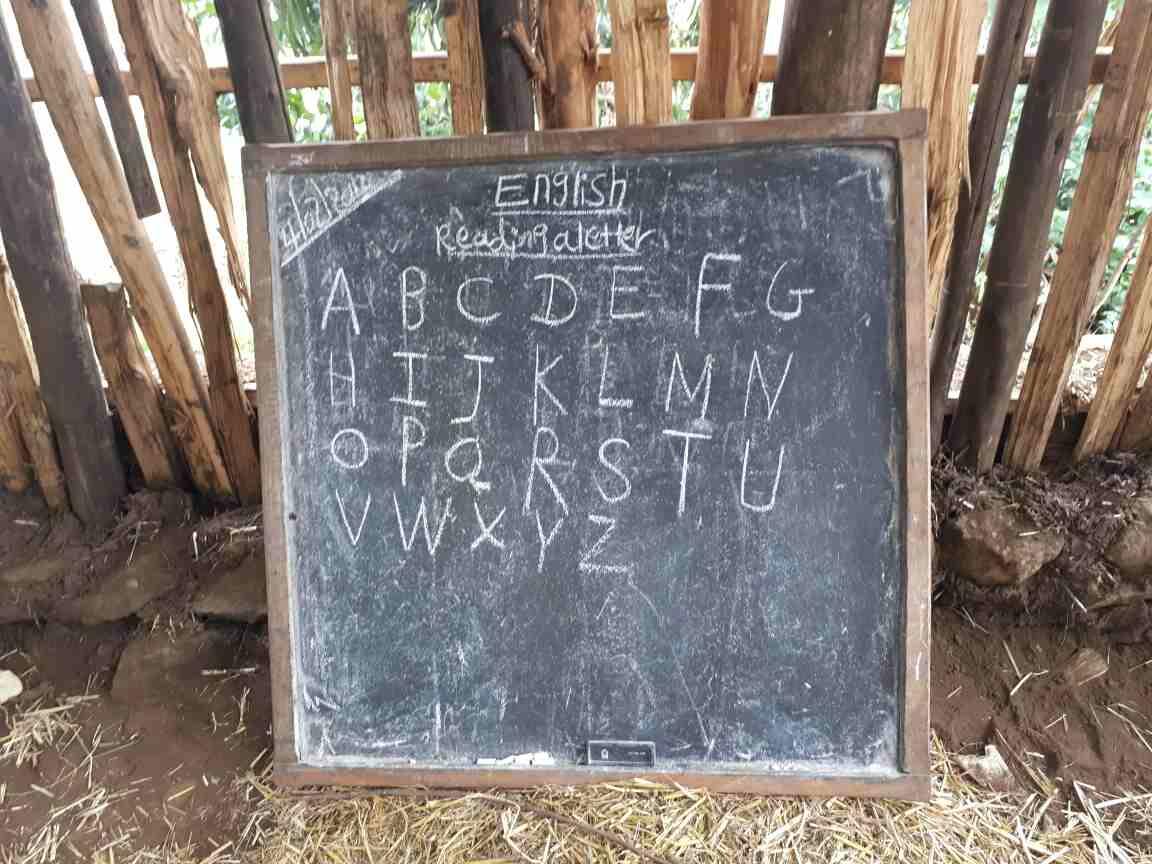 English
Reading a letter
A B C D E F G
H I J K L M N
O P Q R S T U
V W X Y Z